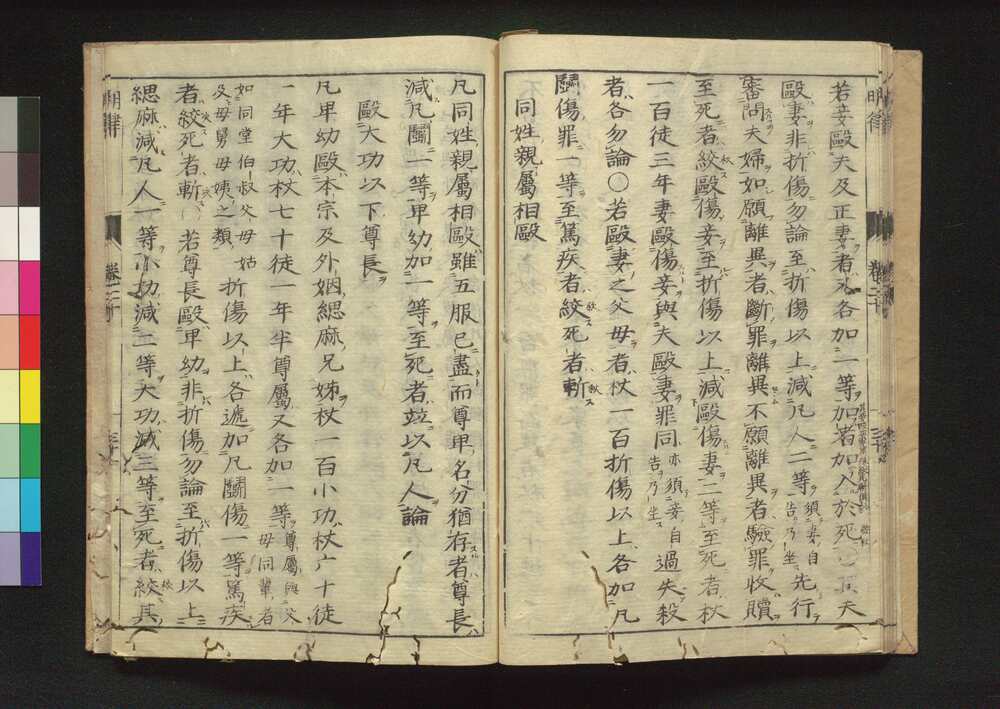 若妾毆夫及正妻者各加一等加者加入於死其夫
毆妻非折傷勿論至折傷以上減凡人二等須妻自告乃坐先行
審問夫婦如願離異者斷罪離異不願離異者驗罪收贖
至死者絞毆傷妾至折傷以上減毆傷妻二等至死者杖
一百徒三年妻毆傷妾與夫毆妻罪同亦須妾自告乃坐過失殺
者各勿論○若毆妻之父母者杖一百折傷以上各加凡
鬭傷罪一等至篤疾者絞死者斬
同姓親屬相毆
凡同姓親屬相毆雖五服已盡而尊卑名分猶存者尊長
減凡鬭一等卑幼加一等至死者竝以凡人論
毆大功以下尊長
凡卑幼毆本宗及外姻緦麻兄姊杖一百小功杖六十徒
一年大功杖七十徒一年半尊屬又各加一等尊屬與父母同輩者
如同堂伯叔父母姑及母舅母姨之類折傷以上各遞加凡鬭傷一等篤疾
者絞死者斬若尊長毆卑幼非折傷勿論至折傷以上
緦麻減凡人一等小功減二等大功減三等至死者絞其
明律
卷二十
明律
卷二十